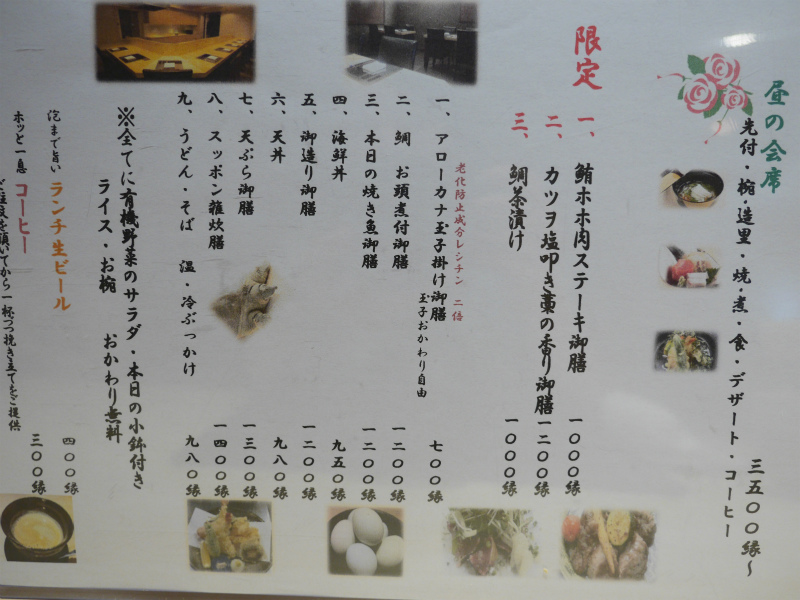 昼の会席
先付・椀・造里・焼・煮・食・デザート・コーヒー
三五〇〇縁～
限定
一、鮪ホホ肉ステーキ御膳 一〇〇〇縁
二、カツヲ塩叩き藁の香り御膳 一二〇〇縁
三、鯛茶漬け 一〇〇〇縁
老化防止成分レシチン 二倍
一、アローカナ玉子掛け御膳 七〇〇縁
玉子おかわり自由
二、鯛 お頭煮付御膳 一二〇〇縁
三、本日の焼き魚御膳 一二〇〇縁
四、海鮮丼 九五〇縁
五、御造り御膳 一二〇〇縁
六、天丼 九八〇縁
七、天ぷら御膳 一三〇〇縁
八、スッポン雑炊膳 一四〇〇縁
九、うどん・そば 温・冷ぶっかけ 九八〇縁
※全てに有機野菜のサラダ・本日の小鉢付き
ライス・お椀 おかわり無料
泡まで旨い ランチ生ビール 四〇〇縁
ホッと一息 コーヒー 三〇〇縁
ご注文を頂いてから一杯づつ挽き立てをご提供